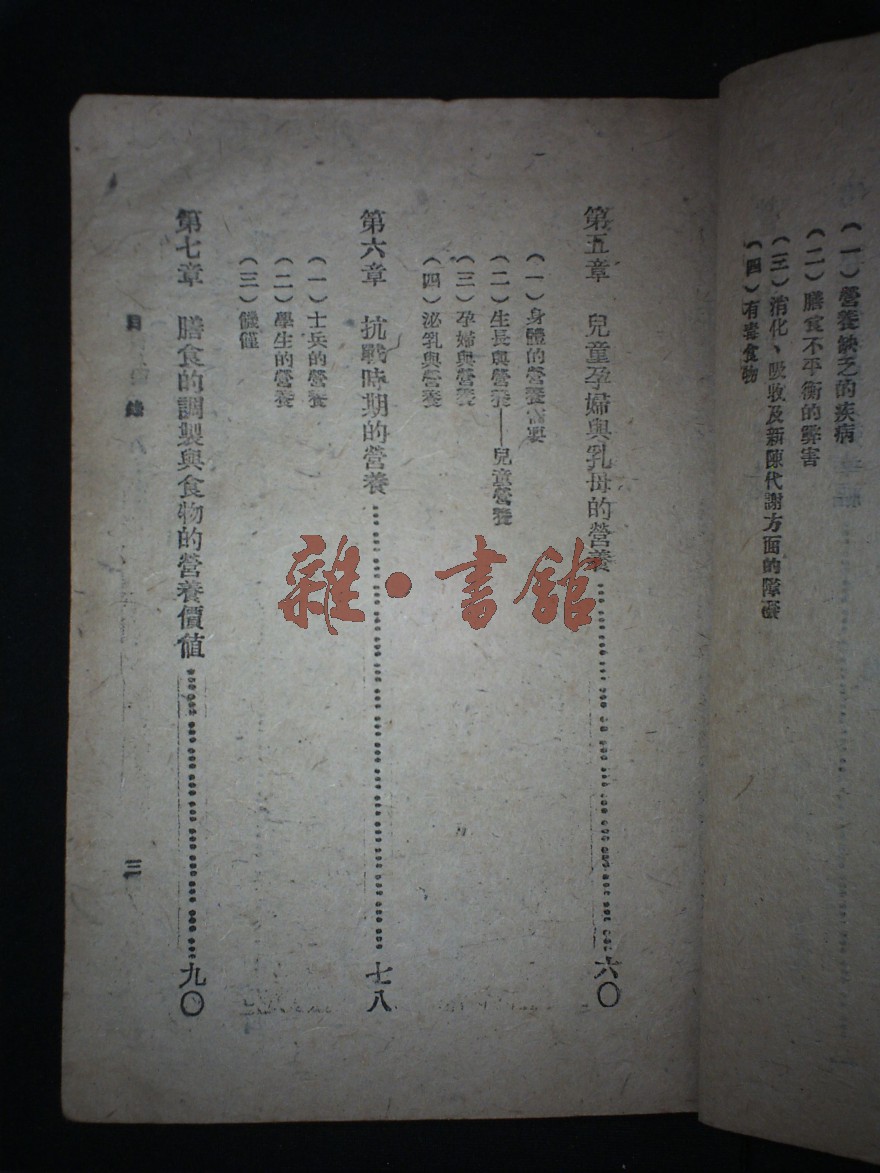 (一)營養缺乏的疾病
(二)膳食不平衡的弊害
(三)消化、吸收及新陳代謝方面的障礙
(四)有毒食物
第五章 兒童孕婦與乳母的營養……六〇
(一)身體的營養需要
(二)生長與營養——兒童營養
(三)孕婦與營養
(四)泌乳與營養
第六章 抗戰時期的營養……七八
(一)士兵的營養
(二)學生的營養
(三)饑饉
第七章 膳食的調製與食物的營養價值……九〇
目錄
三
雜·書館